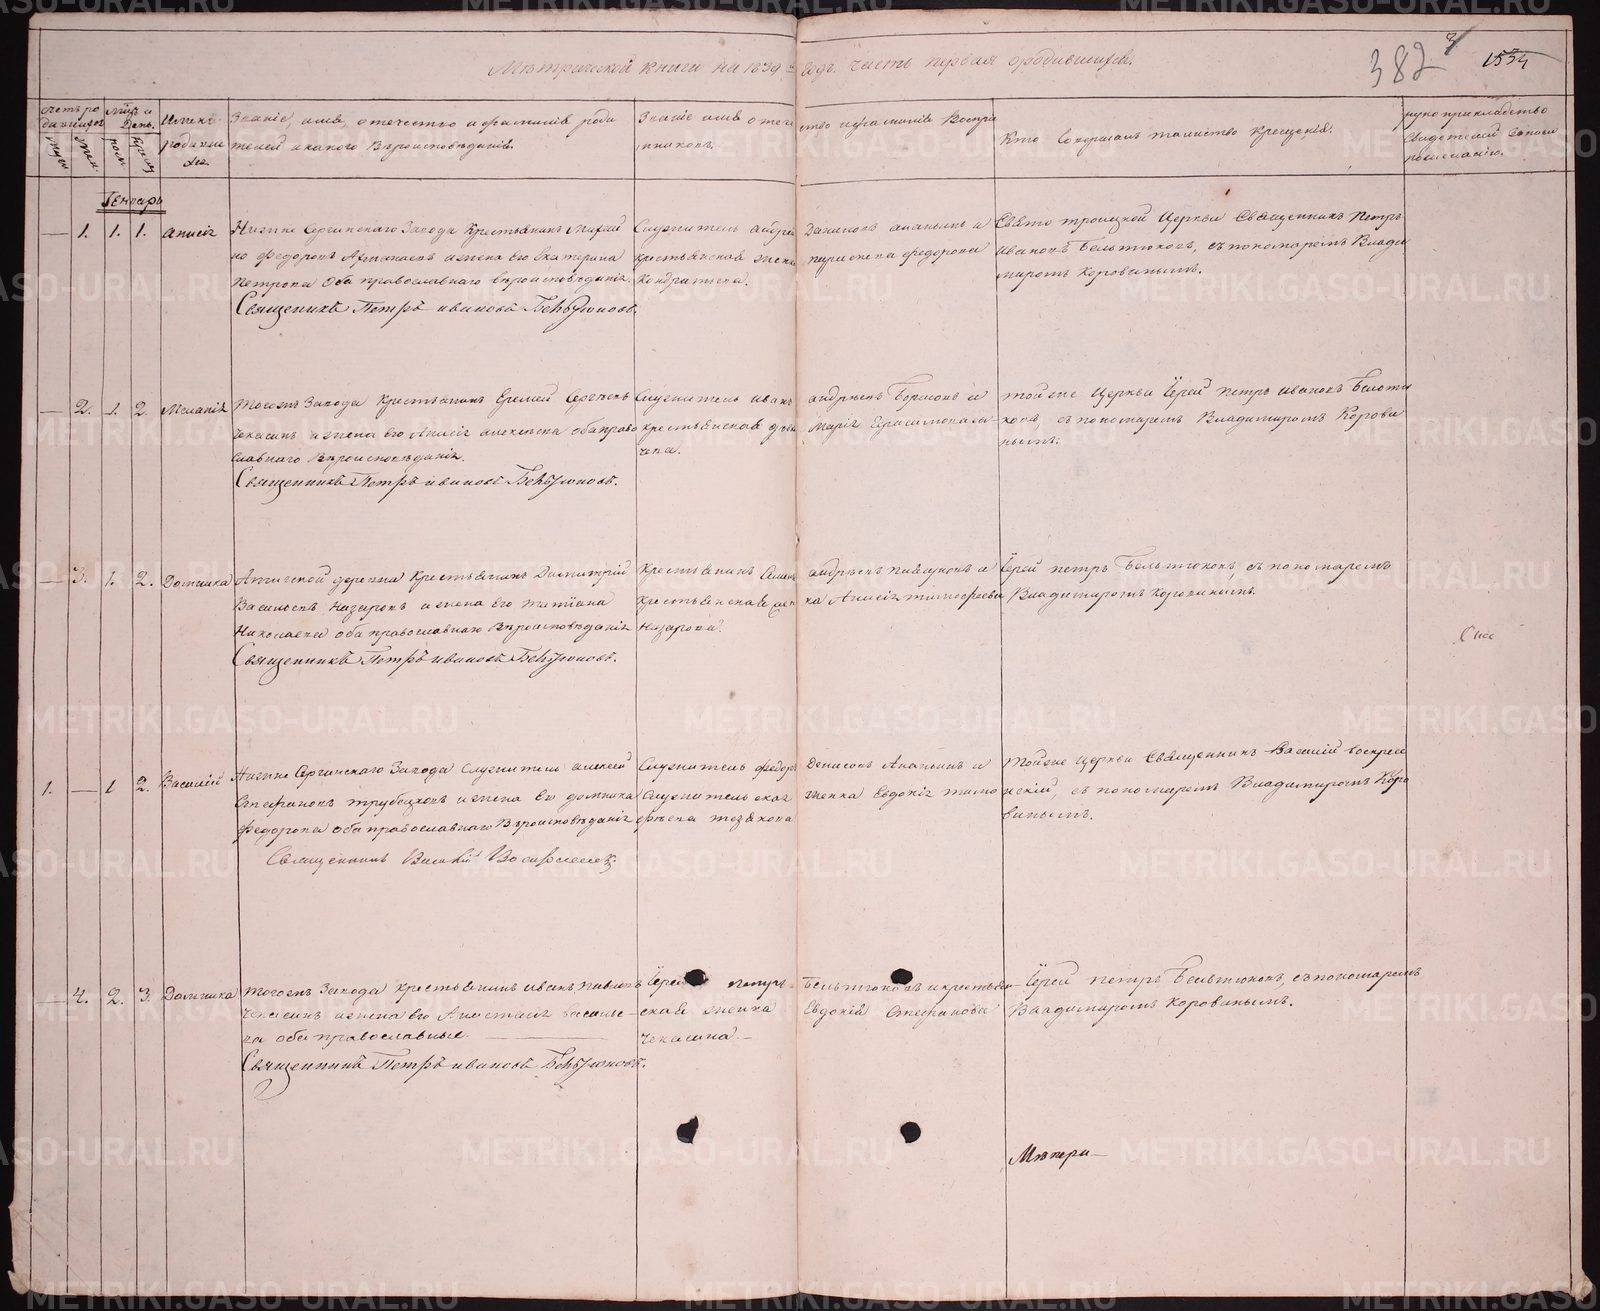 Метрической книги на 1839й годъ. Часть первая о родившихся.
382
1534
Счетъ ро
дившихся
Мѣц. и
День.
Имена
родивших
ся.
Званіе, имя, отечество и фамилія роди
телей и какого вѣроисповѣданія.
Званіе имя отече
ство и фамилія воспрі
емниковъ.
Кто совершалъ таинство крещенія.
рукоприкладство
свидетелей записи
по желанію.
Генварь
— 1. 1. 1.
Анисія
Нижне Сергинскаго Завода крестьянинъ
Федоровъ и жена его Екатерина
Петрова оба православнаго вѣроисповѣданія.
Священникъ Петръ Ивановъ Бельтюковъ.
Служитель Андрей
Данилов Ананьинъ и
крестьянская жена
Федорова
Кондратьева.
Свято троицкой Церкви Священникъ Петръ
Ивановъ Бельтюковъ, съ пономаремъ Влади
миромъ Коровинымъ.
— 2. 1. 2.
Меланія
Тогожъ Завода крестьянинъ Еремей Сергеевъ
Чекасинъ и жена его Анисія Алексеева оба право
славнаго вѣроисповѣданія.
Священникъ Петръ Ивановъ Бельтюковъ.
Служитель Иванъ
Андрѣевъ и
крестьянская
Марія Герасимова
Тойже Церкви Іерей Петръ Ивановъ Бельтю
ковъ, съ пономаремъ Владимиромъ Корови
нымъ.
— 3. 1. 2.
Домника
деревни крестьянинъ Димитрій
Васильевъ Назаровъ и жена его Татіана
Николаева оба православнаго вѣроисповѣданія
Священникъ Петръ Ивановъ Бельтюковъ.
Крестьянинъ Семенъ
Андрѣевъ и
крестьянская
Анисія Тимофеева
Назарова.
Іерей Петръ Бельтюковъ, съ пономаремъ
Владимиромъ Коровинымъ.
1. — 1 2.
Василій
Нижне Сергинскаго Завода Служитель Алексей
Стефановъ Трубецковъ и жена его Домника
Федорова оба православнаго вѣроисповѣданія
Священникъ Василій Воскресенск.
Служитель Федоръ
Денисовъ Ананьинъ и
служительская
женка Евдокія Тимо
фѣева
Тойже Церкви Священникъ Василій Воскресе
нскій, съ пономаремъ Владимиромъ Коро
винымъ.
— 4. 2. 3.
Домника
Тогожъ Завода крестьянинъ Иванъ Павловъ
Чекасинъ и жена его Анастасія Василье
ва оба православные.
Священникъ Петръ Ивановъ Бельтюковъ.
Іерей Петръ
Бельтюковъ и крестьян
ская женка
Евдокія Стефанова
Чекасина.
Іерей Петръ Бельтюковъ, съ пономаремъ
Владимиромъ Коровинымъ.
METRIKI.GASO-URAL.RU